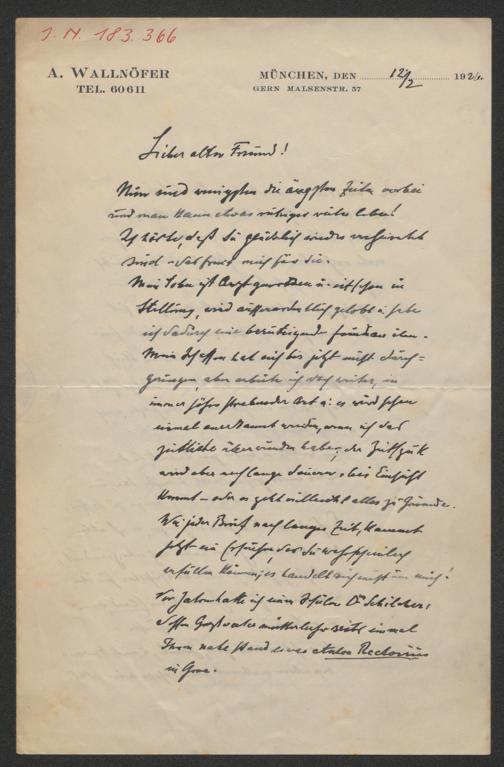 J. N. 183.366
A. WALLNÖFER
TEL. 60611
MÜNCHEN, DEN 12/2 192
GERN MALSENSTR. 57
Lieber alter Freund!
Nun sind wenigstens die ärgsten Zeiten vorbei
und man kann etwas ruhiger weiter leben!
Ich hörte, daß Sie glücklich wieder verheiratet
sind – das freut mich für Sie.
Mein Sohn ist Arzt geworden u. ist schon in
Stellung, wird außerordentlich gelobt u. habe
ich dadurch eine beruhigende Freude an ihm.
Mein Schaffen hat sich bis jetzt nicht durch=
gerungen, aber arbeite ich doch weiter, in
immer höher strebender Art u. es wird schon
einmal anerkannt werden, wenn ich das
zeitliche überwunden habe; der
wird aber noch lange dauern, bis Einsicht
kommt – oder es geht vielleicht alles zu Grunde.
Wie jeder Brief nach langer Zeit, kommt
jetzt ein Ersuchen, das Sie wahrscheinlich
erfüllen können; es handelt sich nicht um mich!
Vor Jahren hatte ich einen Schüler Dr Schilcher,
dessen Großvater mütterlicherseits einmal
Ihnen nahe stand
in Graz.